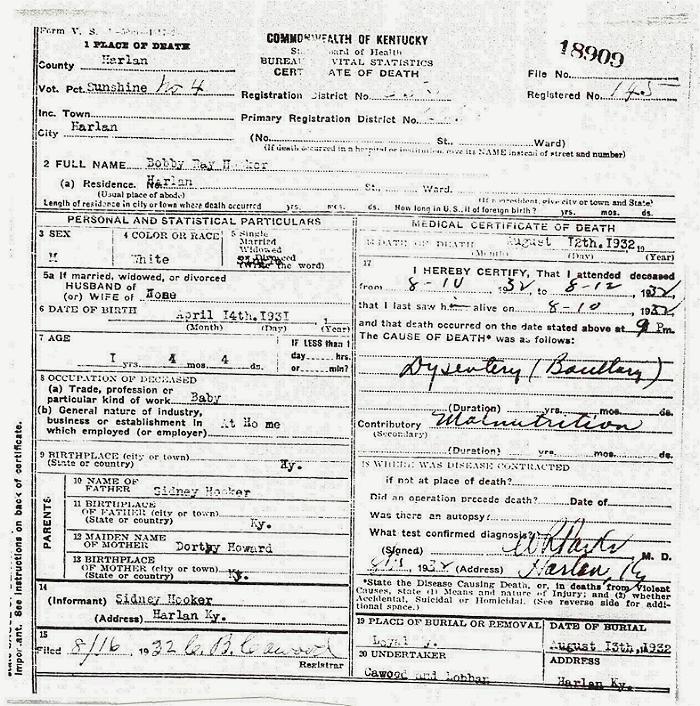 Form V. S.
1 PLACE OF DEATH
County Harlan
Vot. Pct. Sunshine No 4
Inc. Town
City Harlan
COMMONWEALTH OF KENTUCKY
BUREAU VITAL STATISTICS
CERT ATE OF DEATH
Registration District No.
Primary Registration District No.
18909
File No.
Registered No. 145
(No. St., Ward)
(If death occurred in a hospital or institution, give its NAME instead of street and number)
2 FULL NAME Bobby Ray Hooker
(a) Residence. No. Harlan St., Ward.
(Usual place of abode) (If nonresident, give city or town and State)
Length of residence in city or town where death occurred yrs. mos. ds. How long in U.S., if of foreign birth? yrs. mos. ds.
PERSONAL AND STATISTICAL PARTICULARS
3 SEX
M
4 COLOR OR RACE
White
5 Single
Married
Widowed
or Divorced
(write the word)
5a If married, widowed, or divorced
HUSBAND of
(or) WIFE of None
6 DATE OF BIRTH April 14th.1931 1
(Month) (Day) (Year)
7 AGE
1 yrs. 4 mos. 4 ds.
IF LESS than 1
day hrs.
or min?
8 OCCUPATION OF DECEASED
(a) Trade, profession or
particular kind of work Baby
(b) General nature of industry,
business or establishment in
which employed (or employer) At Ho me
9 BIRTHPLACE (city or town)
(State or country) Ky.
PARENTS
10 NAME OF
FATHER Sidney Hooker
11 BIRTHPLACE
OF FATHER (city or town)
(State or country) Ky.
12 MAIDEN NAME
OF MOTHER Dorthy Howard
13 BIRTHPLACE
OF MOTHER (city or town)
(State or country) Ky.
14
(Informant) Sidney Hooker
(Address) Harlan Ky.
15
Filed 8/16 1932 C. B. Cawood
Registrar
MEDICAL CERTIFICATE OF DEATH
16 DATE OF DEATH August 12th.1932 19
(Month) (Day) (Year)
17
I HEREBY CERTIFY, That I attended deceased
from 8-10 1932 to 8-12, 1932,
that I last saw him alive on 8-10, 1932,
and that death occurred on the date stated above at 9 Pm.
The CAUSE OF DEATH* was as follows:
Dysentery (Bacillary)
(Duration) yrs. mos. ds.
Contributory Malnutrition
(Secondary)
(Duration) yrs. mos. ds.
18 WHERE WAS DISEASE CONTRACTED
if not at place of death?
Did an operation precede death? Date of
Was there an autopsy?
What test confirmed diagnosis?
(Signed) M. D.
1932 (Address) Harlan Ky
*State the Disease Causing Death, or, in deaths from Violent
Causes, state (1) Means and nature of Injury; and (2) whether
Accidental, Suicidal or Homicidal. (See reverse side for addi-
tional space.)
19 PLACE OF BURIAL OR REMOVAL
DATE OF BURIAL
August 13th, 1932
20 UNDERTAKER
Cawood and
ADDRESS
Harlan Ky.
Important. See instructions on back of certificate.